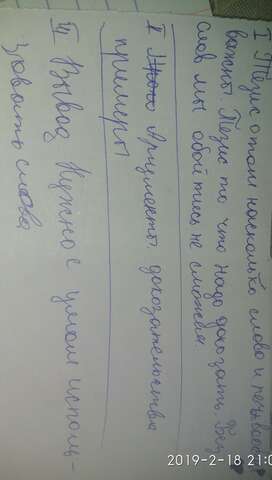 I Тезис о том насколько слово и
важны. Тезис то что надо доказать. Без
слов мы обойтись не сможем
II Аргументы, доказательства
примеры
III Вывод Нужно с умом исполь-
зовать слова
2019-2-18 21:0